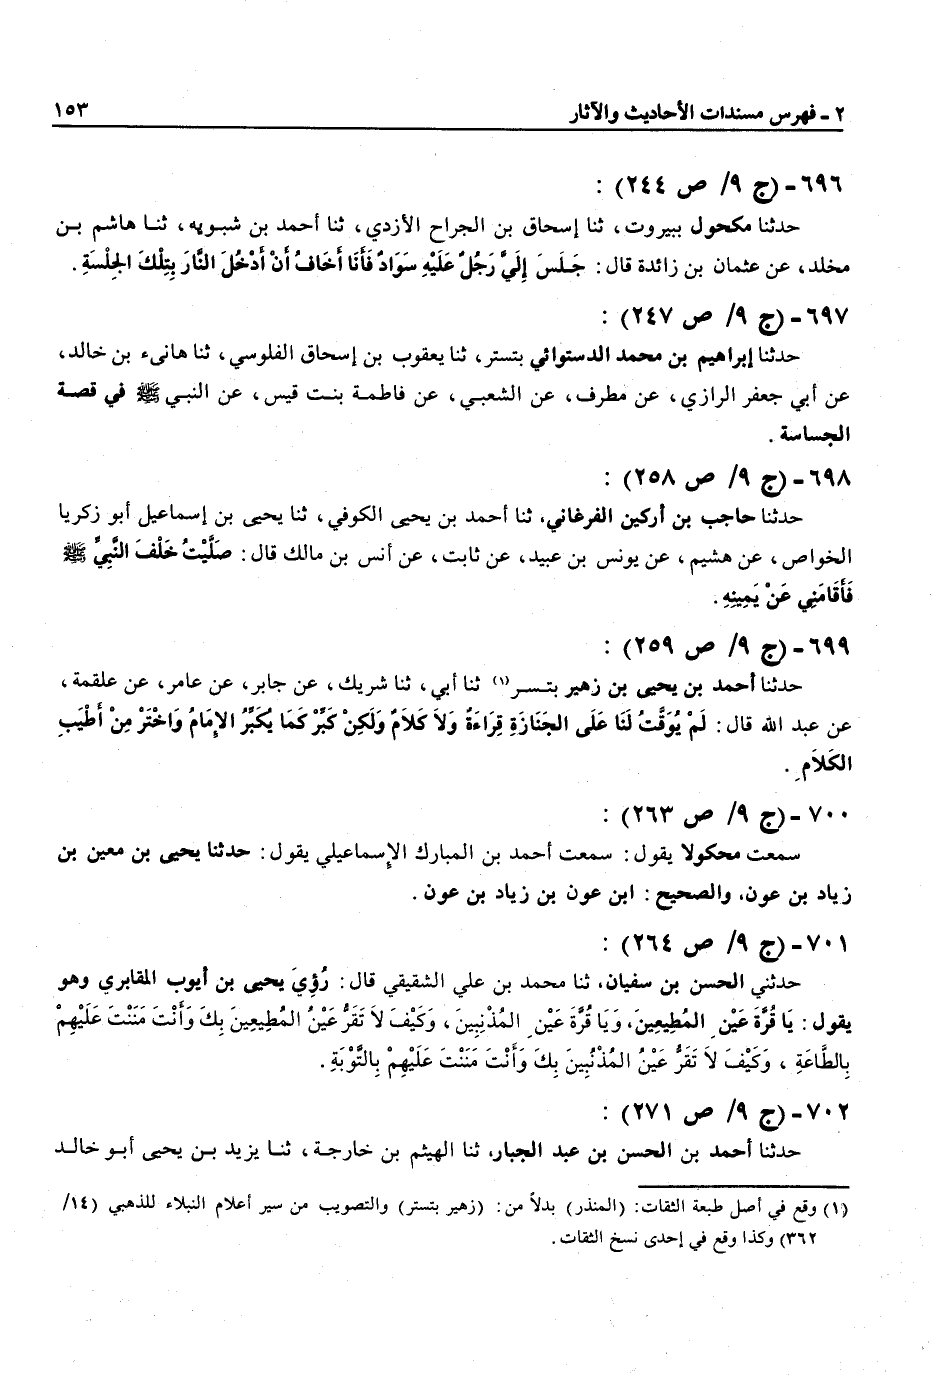 ٢ - فهرس مسندات الأحاديث والآثار ١٥٣
٦٩٦ - (ج ٩/ ص ٢٤٤) :
حدثنا مكحول ببيروت، ثنا إسحاق بن الجراح الأزدي، ثنا أحمد بن شبويه، ثنا هاشم بن
مخلد، عن عثمان بن زائدة قال: جَلَسَ إِلَيَّ رَجُلٌ عَلَيْهِ سَوَادٌ فَأَنَا أَخَافُ أَنْ أَدْخُلَ النَّارَ بِتِلْكَ الجِلْسَةِ.
٦٩٧ - (ج ٩/ ص ٢٤٧) :
حدثنا إبراهيم بن محمد الدستوائي بتستر، ثنا يعقوب بن إسحاق الفلوسي، ثنا هانىء بن خالد،
عن أبي جعفر الرازي، عن مطرف، عن الشعبي، عن فاطمة بنت قيس، عن النبي ﷺ في قصة
الجساسة .
٦٩٨ - (ج ٩/ ص ٢٥٨) :
حدثنا حاجب بن أركين الفرغاني، ثنا أحمد بن يحيى الكوفي، ثنا يحيى بن إسماعيل أبو زكريا
الخواص، عن هشيم، عن يونس بن عبيد، عن ثابت، عن أنس بن مالك قال: صَلَّيْتُ خَلْفَ النَّبِيِّ ﷺ
فَأَقَامَنِي عَنْ يَمِينِهِ.
٦٩٩ - (ج ٩/ ص ٢٥٩) :
حدثنا أحمد بن يحيى بن زهير بتستر(١) ثنا أبي، ثنا شريك، عن جابر، عن عامر، عن علقمة،
عن عبد الله قال: لَمْ يُوَقَّتْ لَنَا عَلَى الجَنَازَةِ قِرَاءَةٌ وَلاَ كَلاَمٌ وَلَكِنْ كَبِّرْ كَمَا يُكَبِّرُ الإِمَامُ وَاخْتَرْ مِنْ أَطْيَبِ
الكَلاَمِ .
٧٠٠ - (ج ٩/ ص ٢٦٣) :
سمعت محكولا يقول: سمعت أحمد بن المبارك الإسماعيلي يقول: حدثنا يحيى بن معين بن
زياد بن عون، والصحيح: ابن عون بن زياد بن عون.
٧٠١ - (ج ٩/ ص ٢٦٤) :
حدثني الحسن بن سفيان، ثنا محمد بن علي الشقيقي قال: رُؤِيَ يحيى بن أيوب المقابري وهو
يقول: يَا قُرَّةَ عَيْنِ المُطِيعِينَ، وَيَا قُرَّةَ عَيْنِ المُذْنِبِينَ، وَكَيْفَ لاَ تَقَرُّ عَيْنُ المُطِيعِينَ بِكَ وَأَنْتَ مَنَنْتَ عَلَيْهِمْ
بِالطَّاعَةِ، وَكَيْفَ لاَ تَقَرُّ عَيْنُ المُذْنُبِينَ بِكَ وَأَنْتَ مَنَنْتَ عَلَيْهِمْ بِالتَّوْبَةِ.
٧٠٢ - (ج ٩/ ص ٢٧١) :
حدثنا أحمد بن الحسن بن عبد الجبار، ثنا الهيثم بن خارجة، ثنا يزيد بن يحيى أبو خالد
(١) وقع في أصل طبعة الثقات: (المنذر) بدلاً من: (زهير بتستر) والتصويب من سير أعلام النبلاء للذهبي (١٤/
٣٦٢) وكذا وقع في إحدى نسخ الثقات.